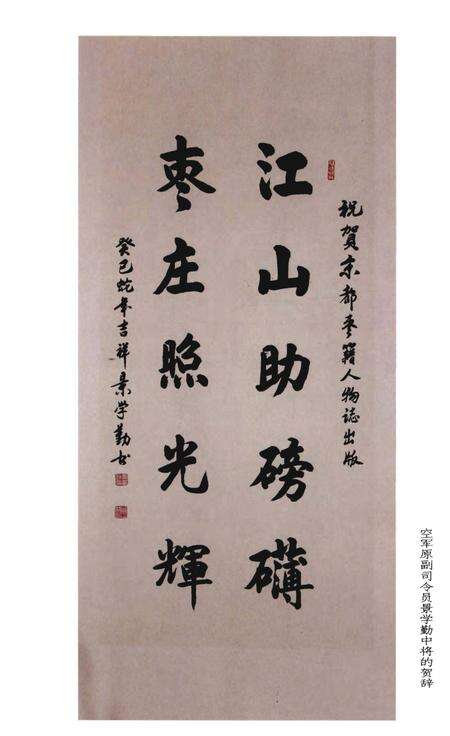 祝贺京都枣籍人物誌出版
江山助磅礴
枣庄照光輝
癸巳蛇年吉祥景学勤书
空军原副司令员景学勤中将的贺辞